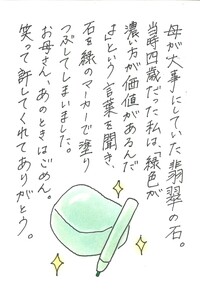 母が大事にしていた翡翠の石。
当時四歳だった私は、緑色が
濃い方が価値があるんだ
よという言葉を聞き、
石を緑のマーカーで塗り
つぶしてしまいました。
お母さん、あのときはごめん。
笑って許してくれてありがとう。